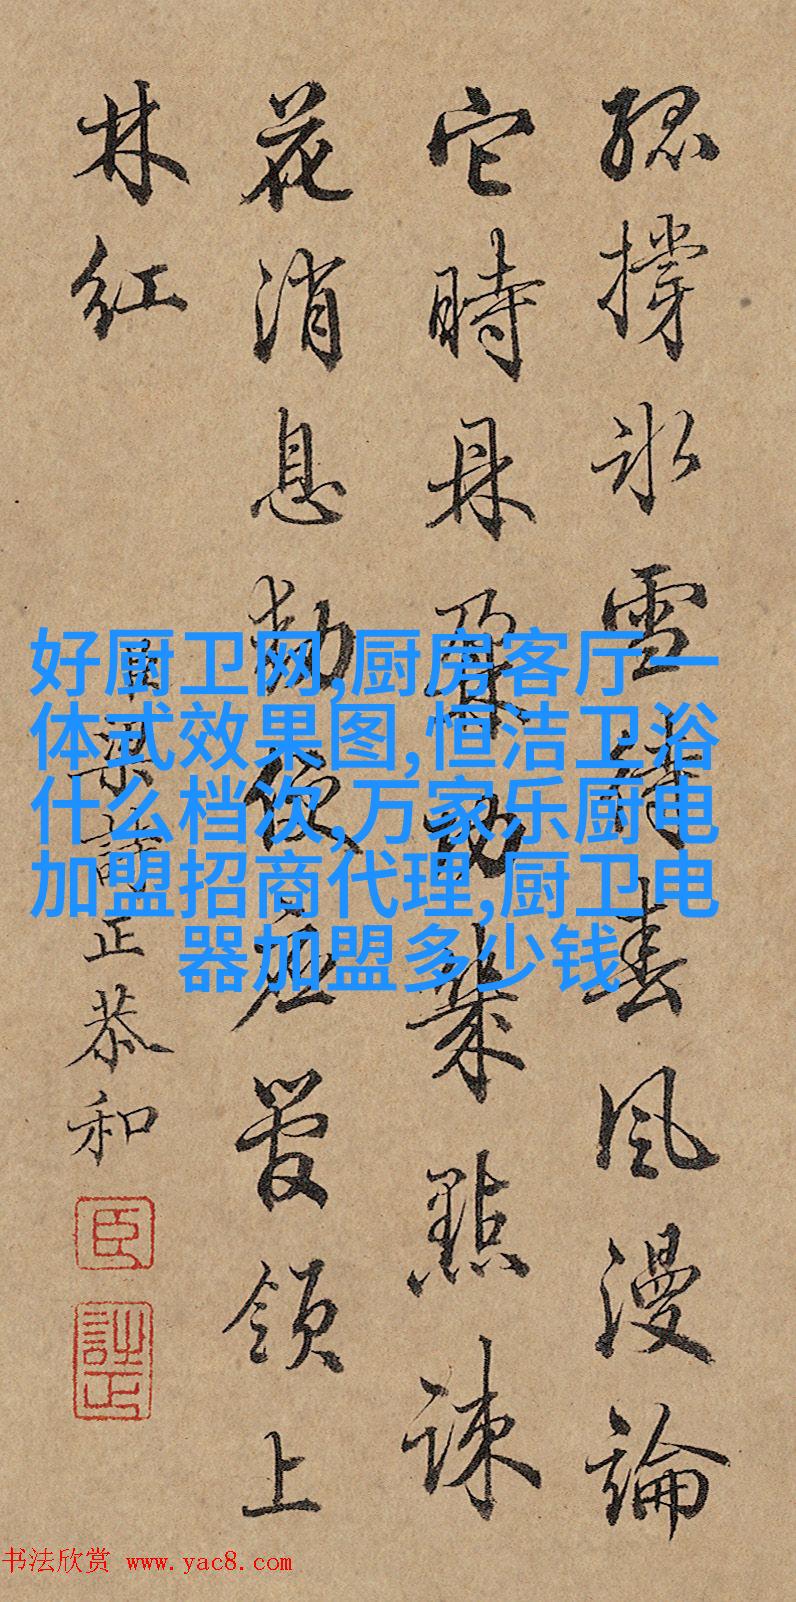 孤撐冰雪春風漫論
它時鼎鼐功幾點疎
花消息動便應管領上
林紅
梁詩正恭和
臣
詩正
好厨卫网,厨房客厅一
体式效果图,恒洁卫浴
什么档次,万家乐厨电
加盟招商代理,厨卫电
器加盟多少钱
书法欣赏 www.yac8.com